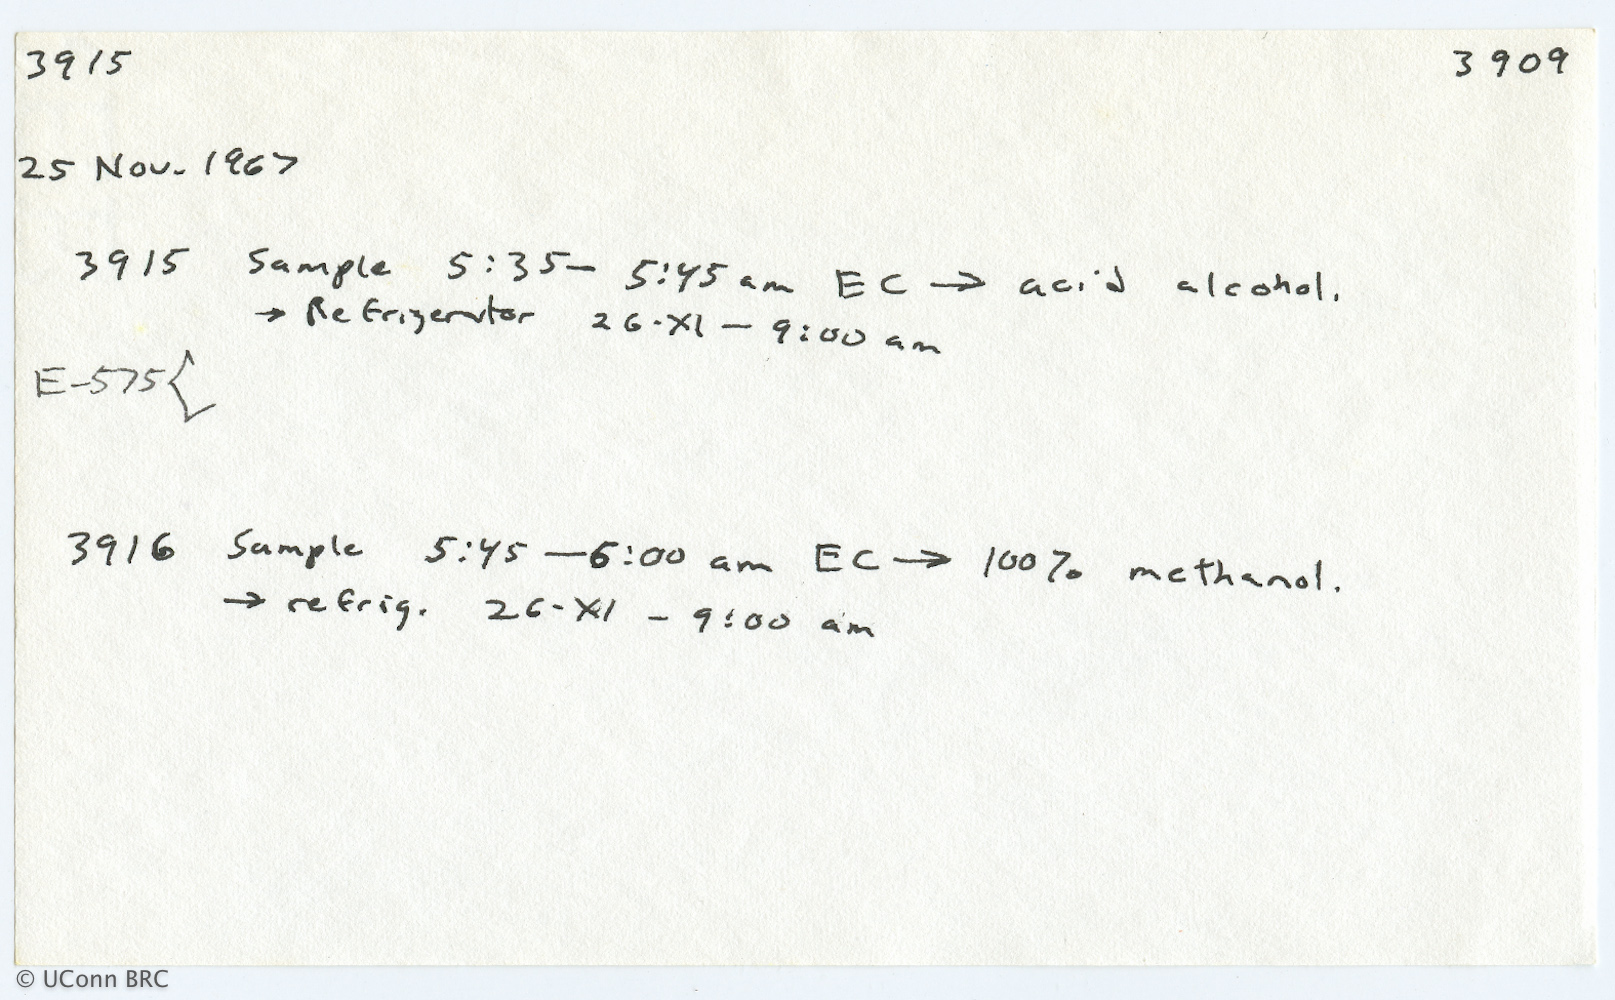 3915 3909
25 Nov. 1967
3915 Sample 5:35 - 5:45 am EC → acid alcohol.
→ Refrigerator 26-XI - 9:00 am
E-575{
3916 Sample 5:45 - 6:00 am EC → 100% methanol.
→ refrig. 26-XI - 9:00 am
© UConn BRC